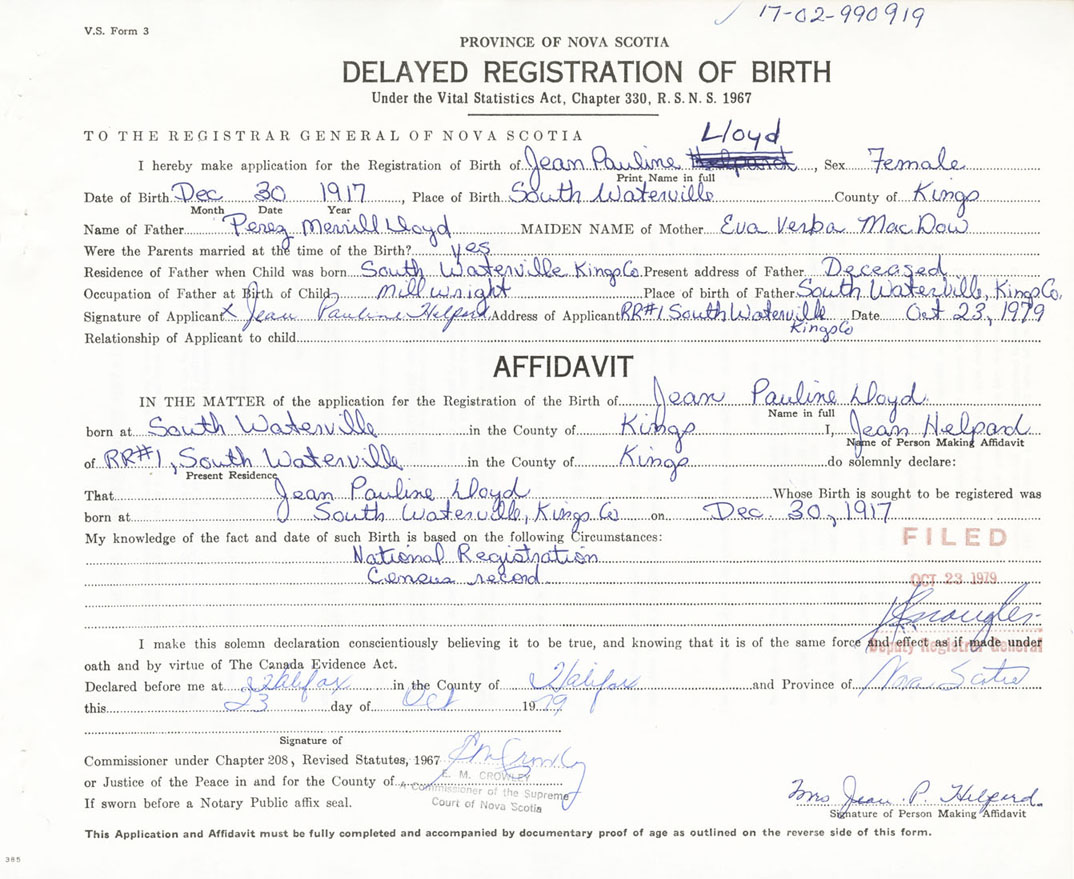 17-02-990919
V.S. Form 3
PROVINCE OF NOVA SCOTIA
DELAYED REGISTRATION OF BIRTH
Under the Vital Statistics Act, Chapter 330, R. S. N. S. 1967
Lloyd
TO THE REGISTRAR GENERAL OF NOVA SCOTIA
I hereby make application for the Registration of Birth of Jean Pauline Helpard, Sex Female
Print Name in full
Date of Birth Dec 30 1917, Place of Birth South Waterville County of Kings
Month Date Year
Name of Father Perez Merrill Lloyd MAIDEN NAME of Mother Eva Verba MacDow
Were the Parents married at the time of the Birth? yes
Residence of Father when Child was born South Waterville Kings Co. Present address of Father Deceased
Occupation of Father at Birth of Child Millwright Place of birth of Father South Waterville, Kings Co,
Signature of Applicant x Jean Pauline Helpard Address of Applicant RR#1 South Waterville Date Oct 23, 1979
Kings Co
Relationship of Applicant to child
AFFIDAVIT
IN THE MATTER of the application for the Registration of the Birth of Jean Pauline Lloyd
Name in full
born at South Waterville in the County of Kings I, Jean Helpard
Name of Person Making Affidavit
of RR#1, South Waterville in the County of Kings do solemnly declare:
Present Residence
That Jean Pauline Lloyd Whose Birth is sought to be registered was
born at South Waterville, Kings Co on Dec. 30, 1917
My knowledge of the fact and date of such Birth is based on the following Circumstances:
FILED
National Registration
Census record.
OCT 23 1979
I make this solemn declaration conscientiously believing it to be true, and knowing that it is of the same force and effect as if made under
Deputy Registrar General
oath and by virtue of The Canada Evidence Act.
Declared before me at Halifax in the County of Halifax and Province of Nova Scotia
this 23 day of Oct 1979
Signature of
Commissioner under Chapter 208, Revised Statutes, 1967 EM Crowley
or Justice of the Peace in and for the County of
E. M. CROWLEY
A Commissioner of the Supreme
Court of Nova Scotia
If sworn before a Notary Public affix seal.
Mrs Jean P. Helpard
Signature of Person Making Affidavit
This Application and Affidavit must be fully completed and accompanied by documentary proof of age as outlined on the reverse side of this form.
385